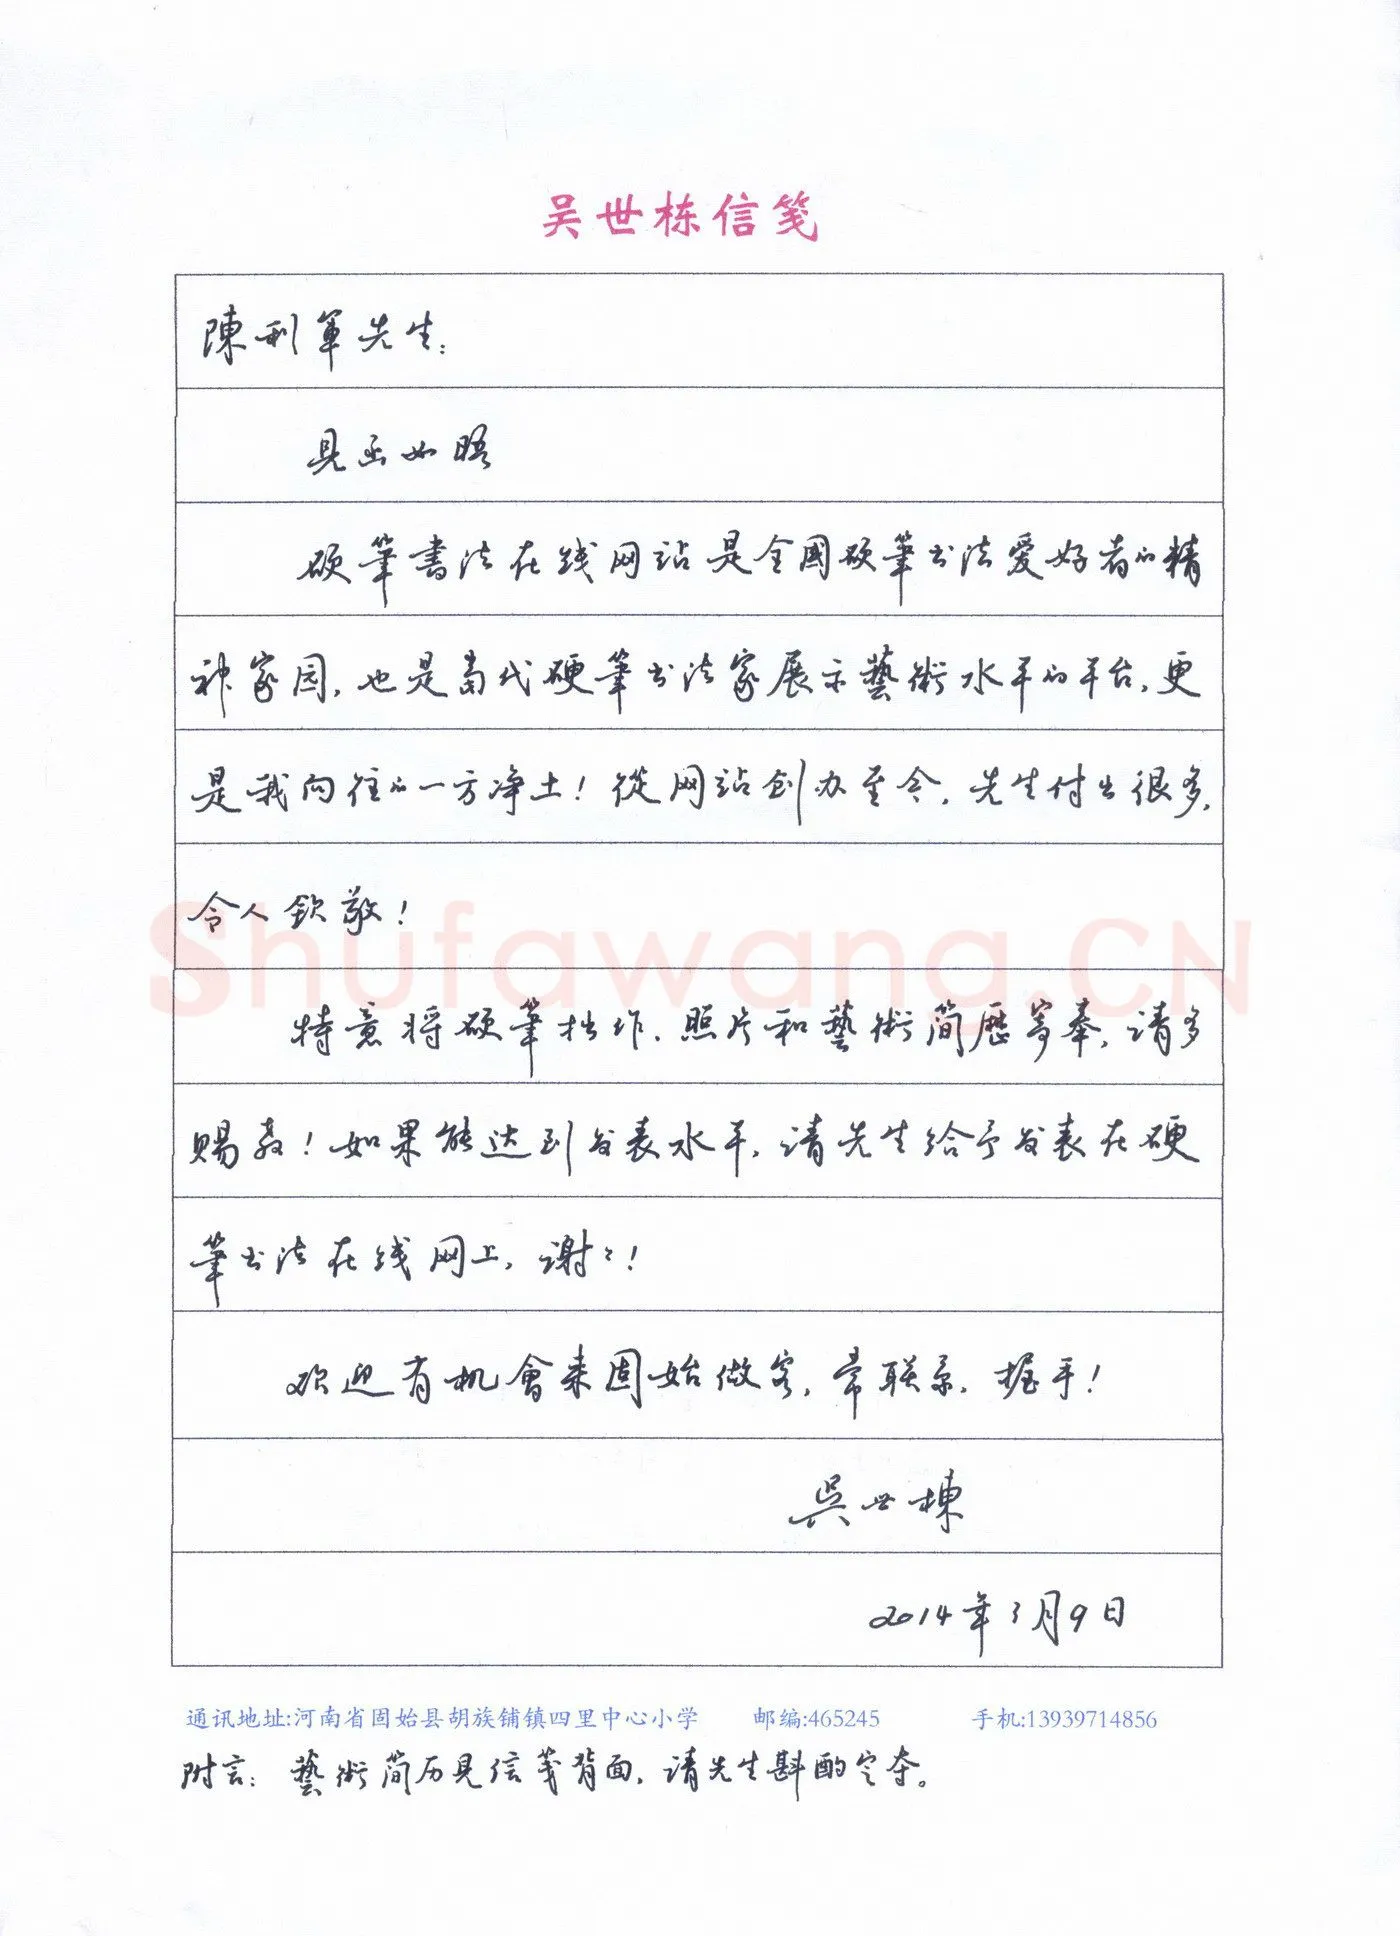 吴世栋信笺
陳利軍先生:
見函如晤
硬筆書法在线网站是全國硬筆书法爱好者的精
神家园,也是当代硬筆书法家展示藝術水平的平台,更
是我向往的一方净土!從网站创办至今,先生付出很多,
令人钦敬!
Shufawang.CN
特意将硬筆拙作、照片和藝術简歷寄奉,请多
赐教!如果能达到发表水平,请先生给予发表在硬
筆书法在线网上,谢々!
欢迎有机會来固始做客,常联系,握手!
吳世棟
2014年3月9日
通讯地址:河南省固始县胡族铺镇四里中心小学 邮编:465245 手机:13939714856
附言:藝術简历見信笺背面,请先生斟酌定夺。